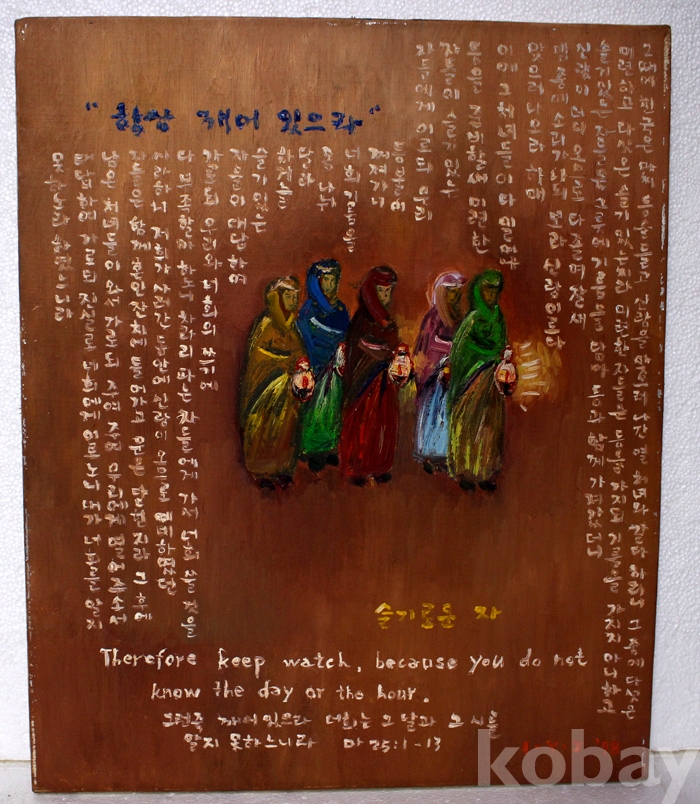 "항상 깨어 있으라"
그때에 천국은 마치 등을 들고 신랑을 맞으러 나간 열 처녀와 같다 하리니 그 중에 다섯은
미련하고 다섯은 슬기 있는지라 미련한 자들은 등을 가지되 기름을 가지지 아니하고
슬기 있는 자들은 그릇에 기름을 담아 등과 함께 가져갔더니
신랑이 더디 오므로 다 졸며 잘새
밤중에 소리가 나되 보라 신랑이로다
맞으러 나오라 하매
이에 그 처녀들이 다 일어나
등을 준비할새 미련한
자들이 슬기 있는
자들에게 이르되 우리
등불이
꺼져가니
너희 기름을
좀 나눠
달라
하거늘
슬기 있는
자들이 대답하여
가로되 우리와 너희의 쓰기에
다 부족할까 하노니 차라리 파는 자들에게 가서 너희 쓸 것을
사라하니 저희가 사러간 동안에 신랑이 오므로 예비하였던
자들은 함께 혼인 잔치에 들어가고 문은 닫힌지라 그 후에
남은 처녀들이 와서 가로되 주여 주여 우리에게 열어주소서
대답하여 가로되 진실로 너희에게 이르노니 내가 너희를 알지
못하노라 하였느니라
슬기로운 자
Therefore keep watch, because you do not
know the day or the hour.
그런즉 깨어 있으라 너희는 그 날과 그 시를
알지 못하느니라 마 25:1-13
kobay